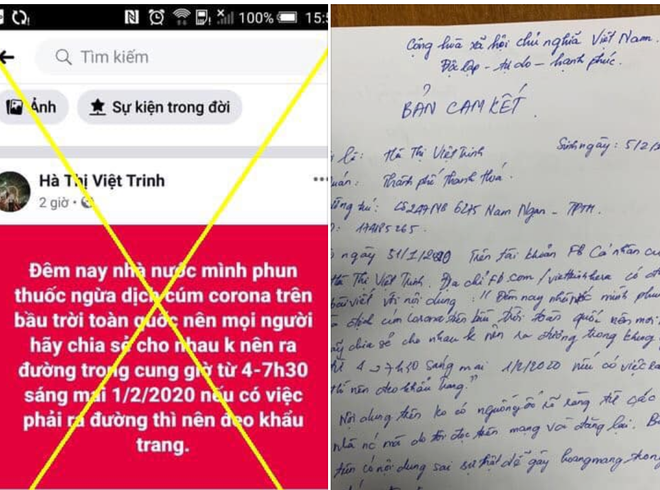 100% 15:5
Tìm kiếm
Ảnh
Sự kiện trong đời
Hà Thị Việt Trinh
2 giờ
Đêm nay nhà nước mình phun
thuốc ngừa dịch cúm corona trên
bầu trời toàn quốc nên mọi người
hãy chia sẽ cho nhau k nên ra
đường trong cung giờ từ 4-7h30
sáng mai 1/2/2020 nếu có việc
phải ra đường thì nên đeo khẩu
trang.
Cộng hòa xã hội chủ nghĩa Việt Nam.
Độc lập - tự do - hạnh phúc.
BẢN CAM KẾT.
Hà Thị Việt Trinh Sinh ngày: 5/2/
Thành phố Thanh Hoá.
Nam Ngạn - TPTH.
ngày 31/1/2020 Trên tài khoản Fb Cá nhân
Hà Thị Việt Trinh. Địa chỉ Fb.com/
bài viết với nội dung: "Đêm nay nhà nước mình
dịch cúm Corona trên bầu trời toàn quốc nên mọi
chia sẽ cho nhau k nên ra đường trong khung
4 -> 7h30 sáng mai 1/2/2020 nếu có việc
thì nên đeo khẩu trang"
Nội dung trên ko có nguồn gốc rõ ràng từ các
mà do tôi đọc trên mạng và đăng lại.
có nội dung sai sự thật dễ gây hoang mang trong